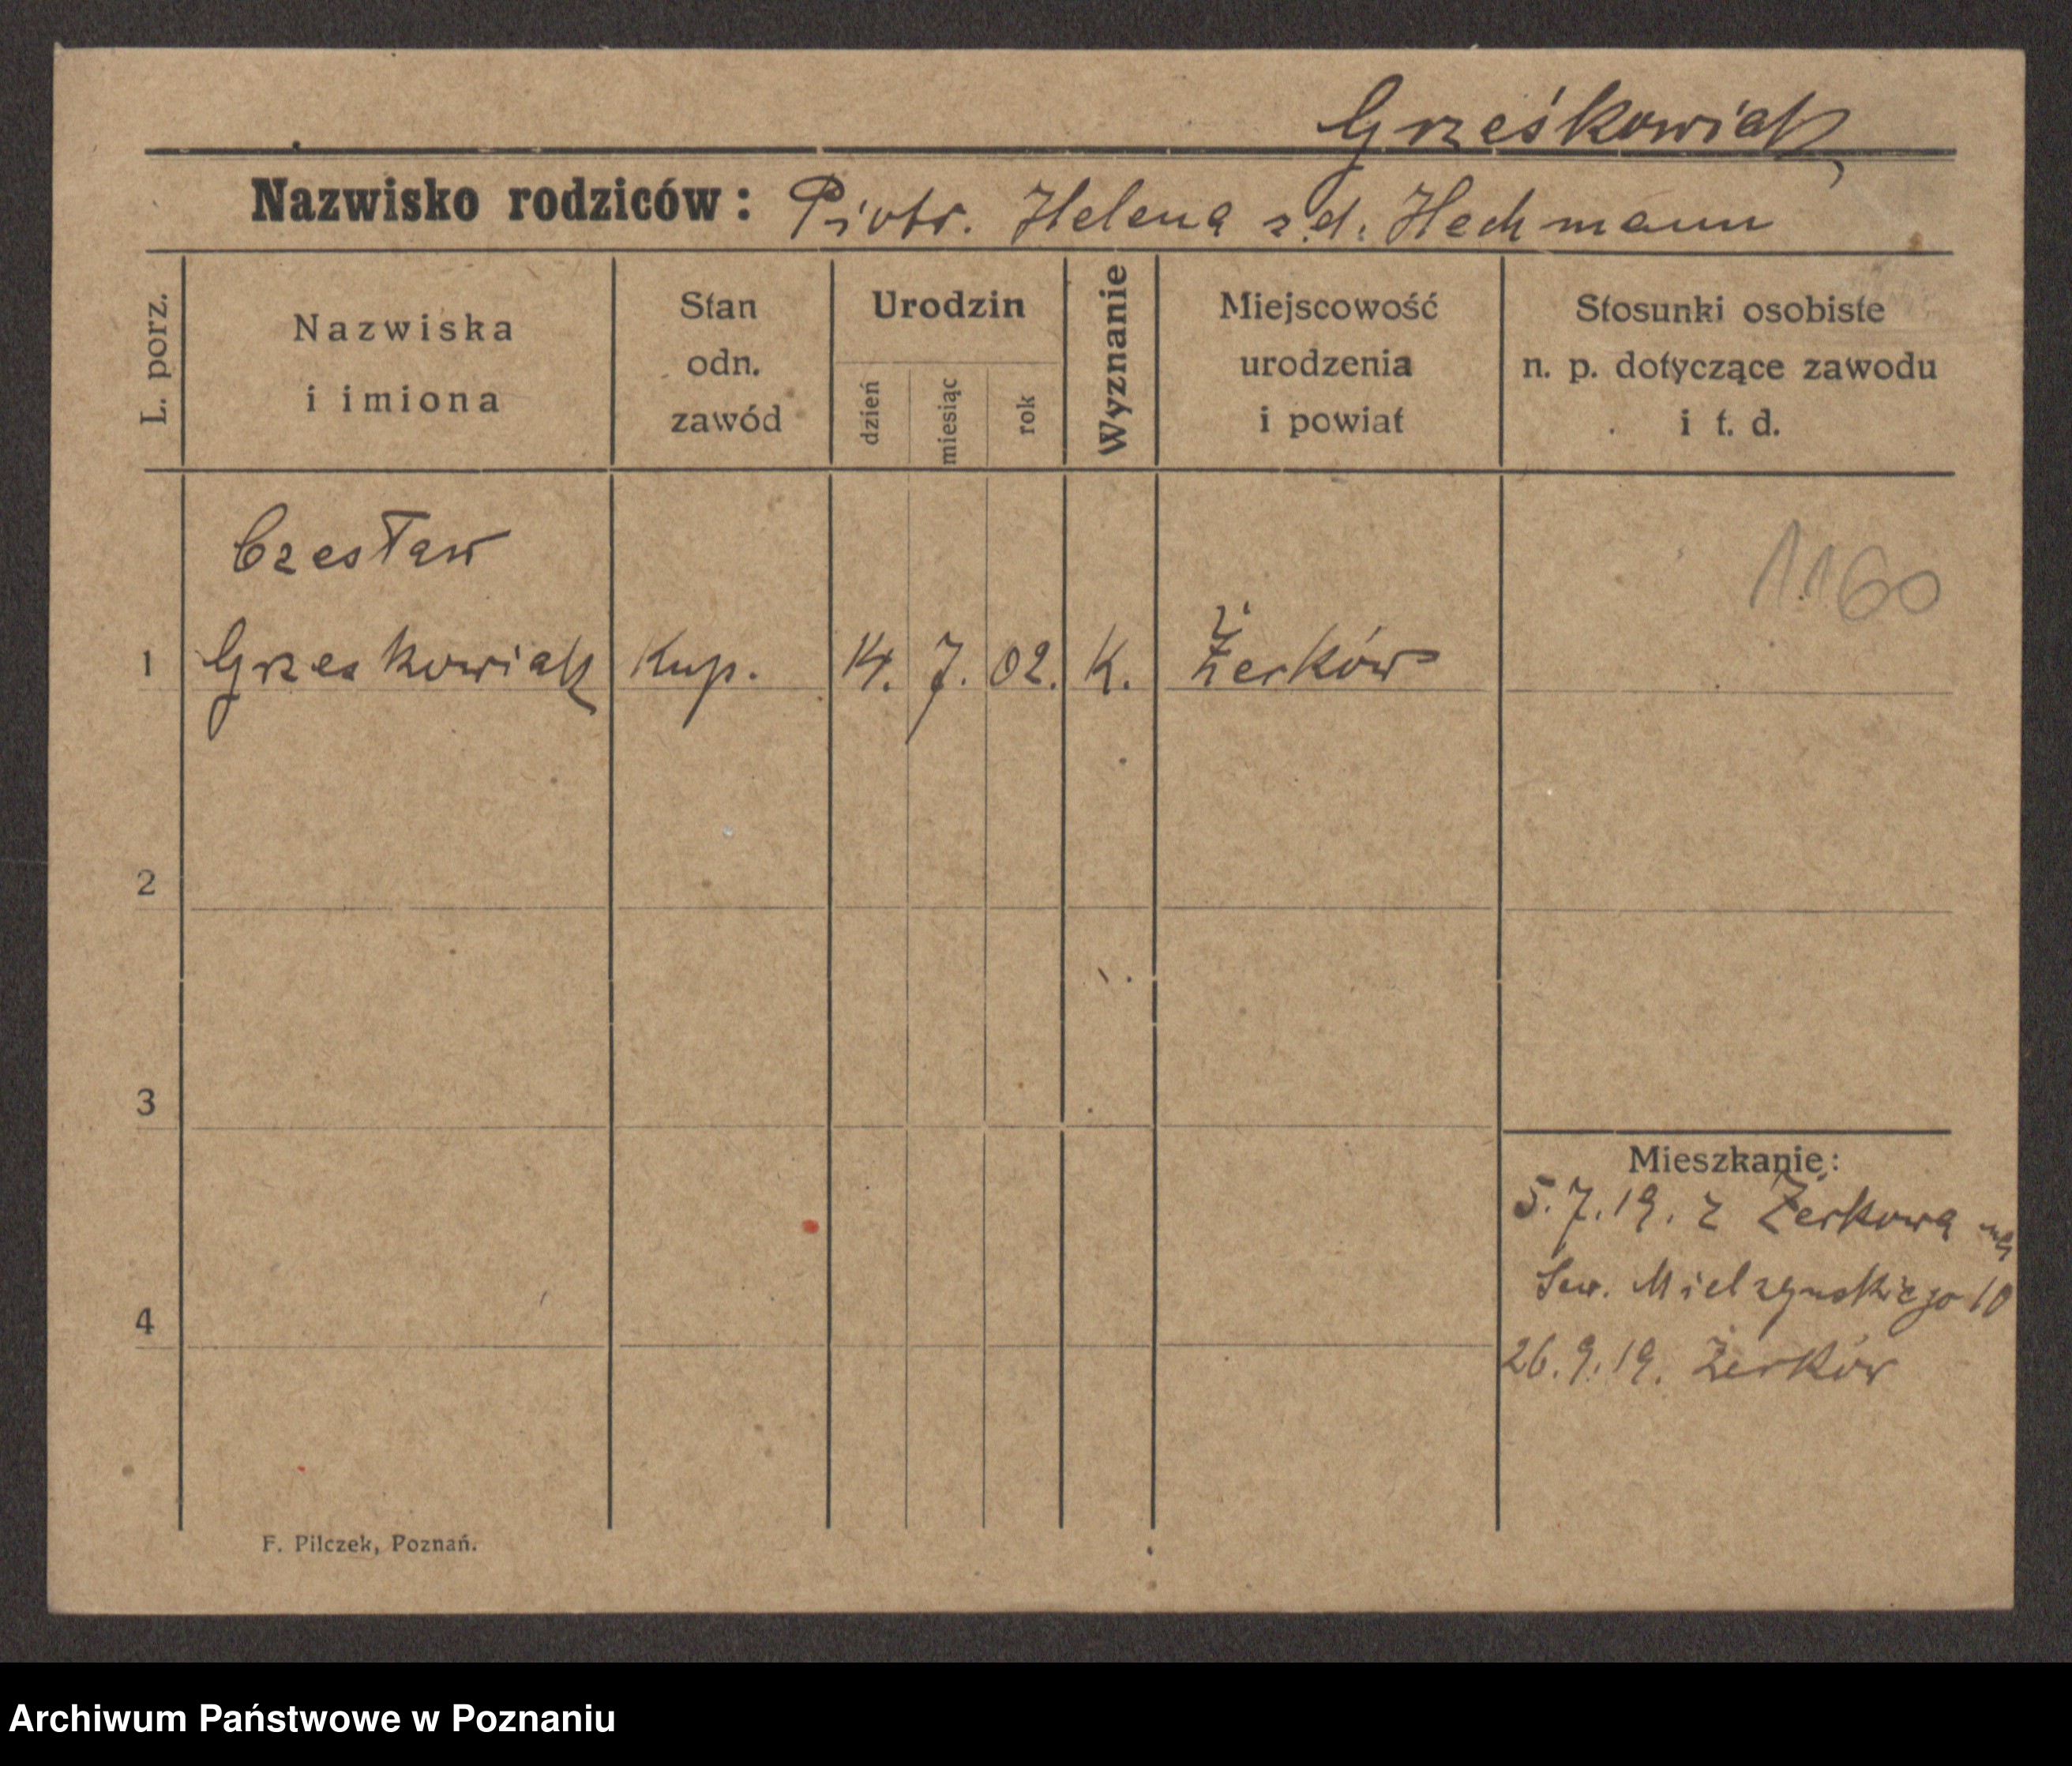 Grześkowiak
Nazwisko rodziców: Piotr. Helena z d. Hechmann
L. porz.
Nazwiska
i imiona
Stan
odn.
zawód
Urodzin
dzień
miesiąc
rok
Wyznanie
Miejscowość
urodzenia
i powiat
Stosunki osobiste
n. p. dotyczące zawodu
i t. d.
Czesław
1160
1 Grzeskowiak Kup. 14. 7. 02. K. Żerków
2
3
Mieszkanie:
5.7.19. z Żerkowa
Sew. Mielzynskiego 10
4
26.9.19. Żerków
F. Pilczek, Poznań.
Archiwum Państwowe w Poznaniu